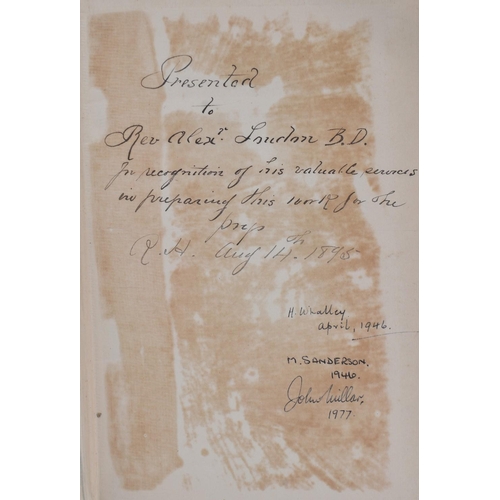 Presented
to
Rev Alexr. Loudon B.D.
In recognition of his valuable services
in preparing this work for the
press
R.H. Aug 14th. 1895
H. Whalley
April, 1946.
M. SANDERSON.
1946.
John Millar,
1977